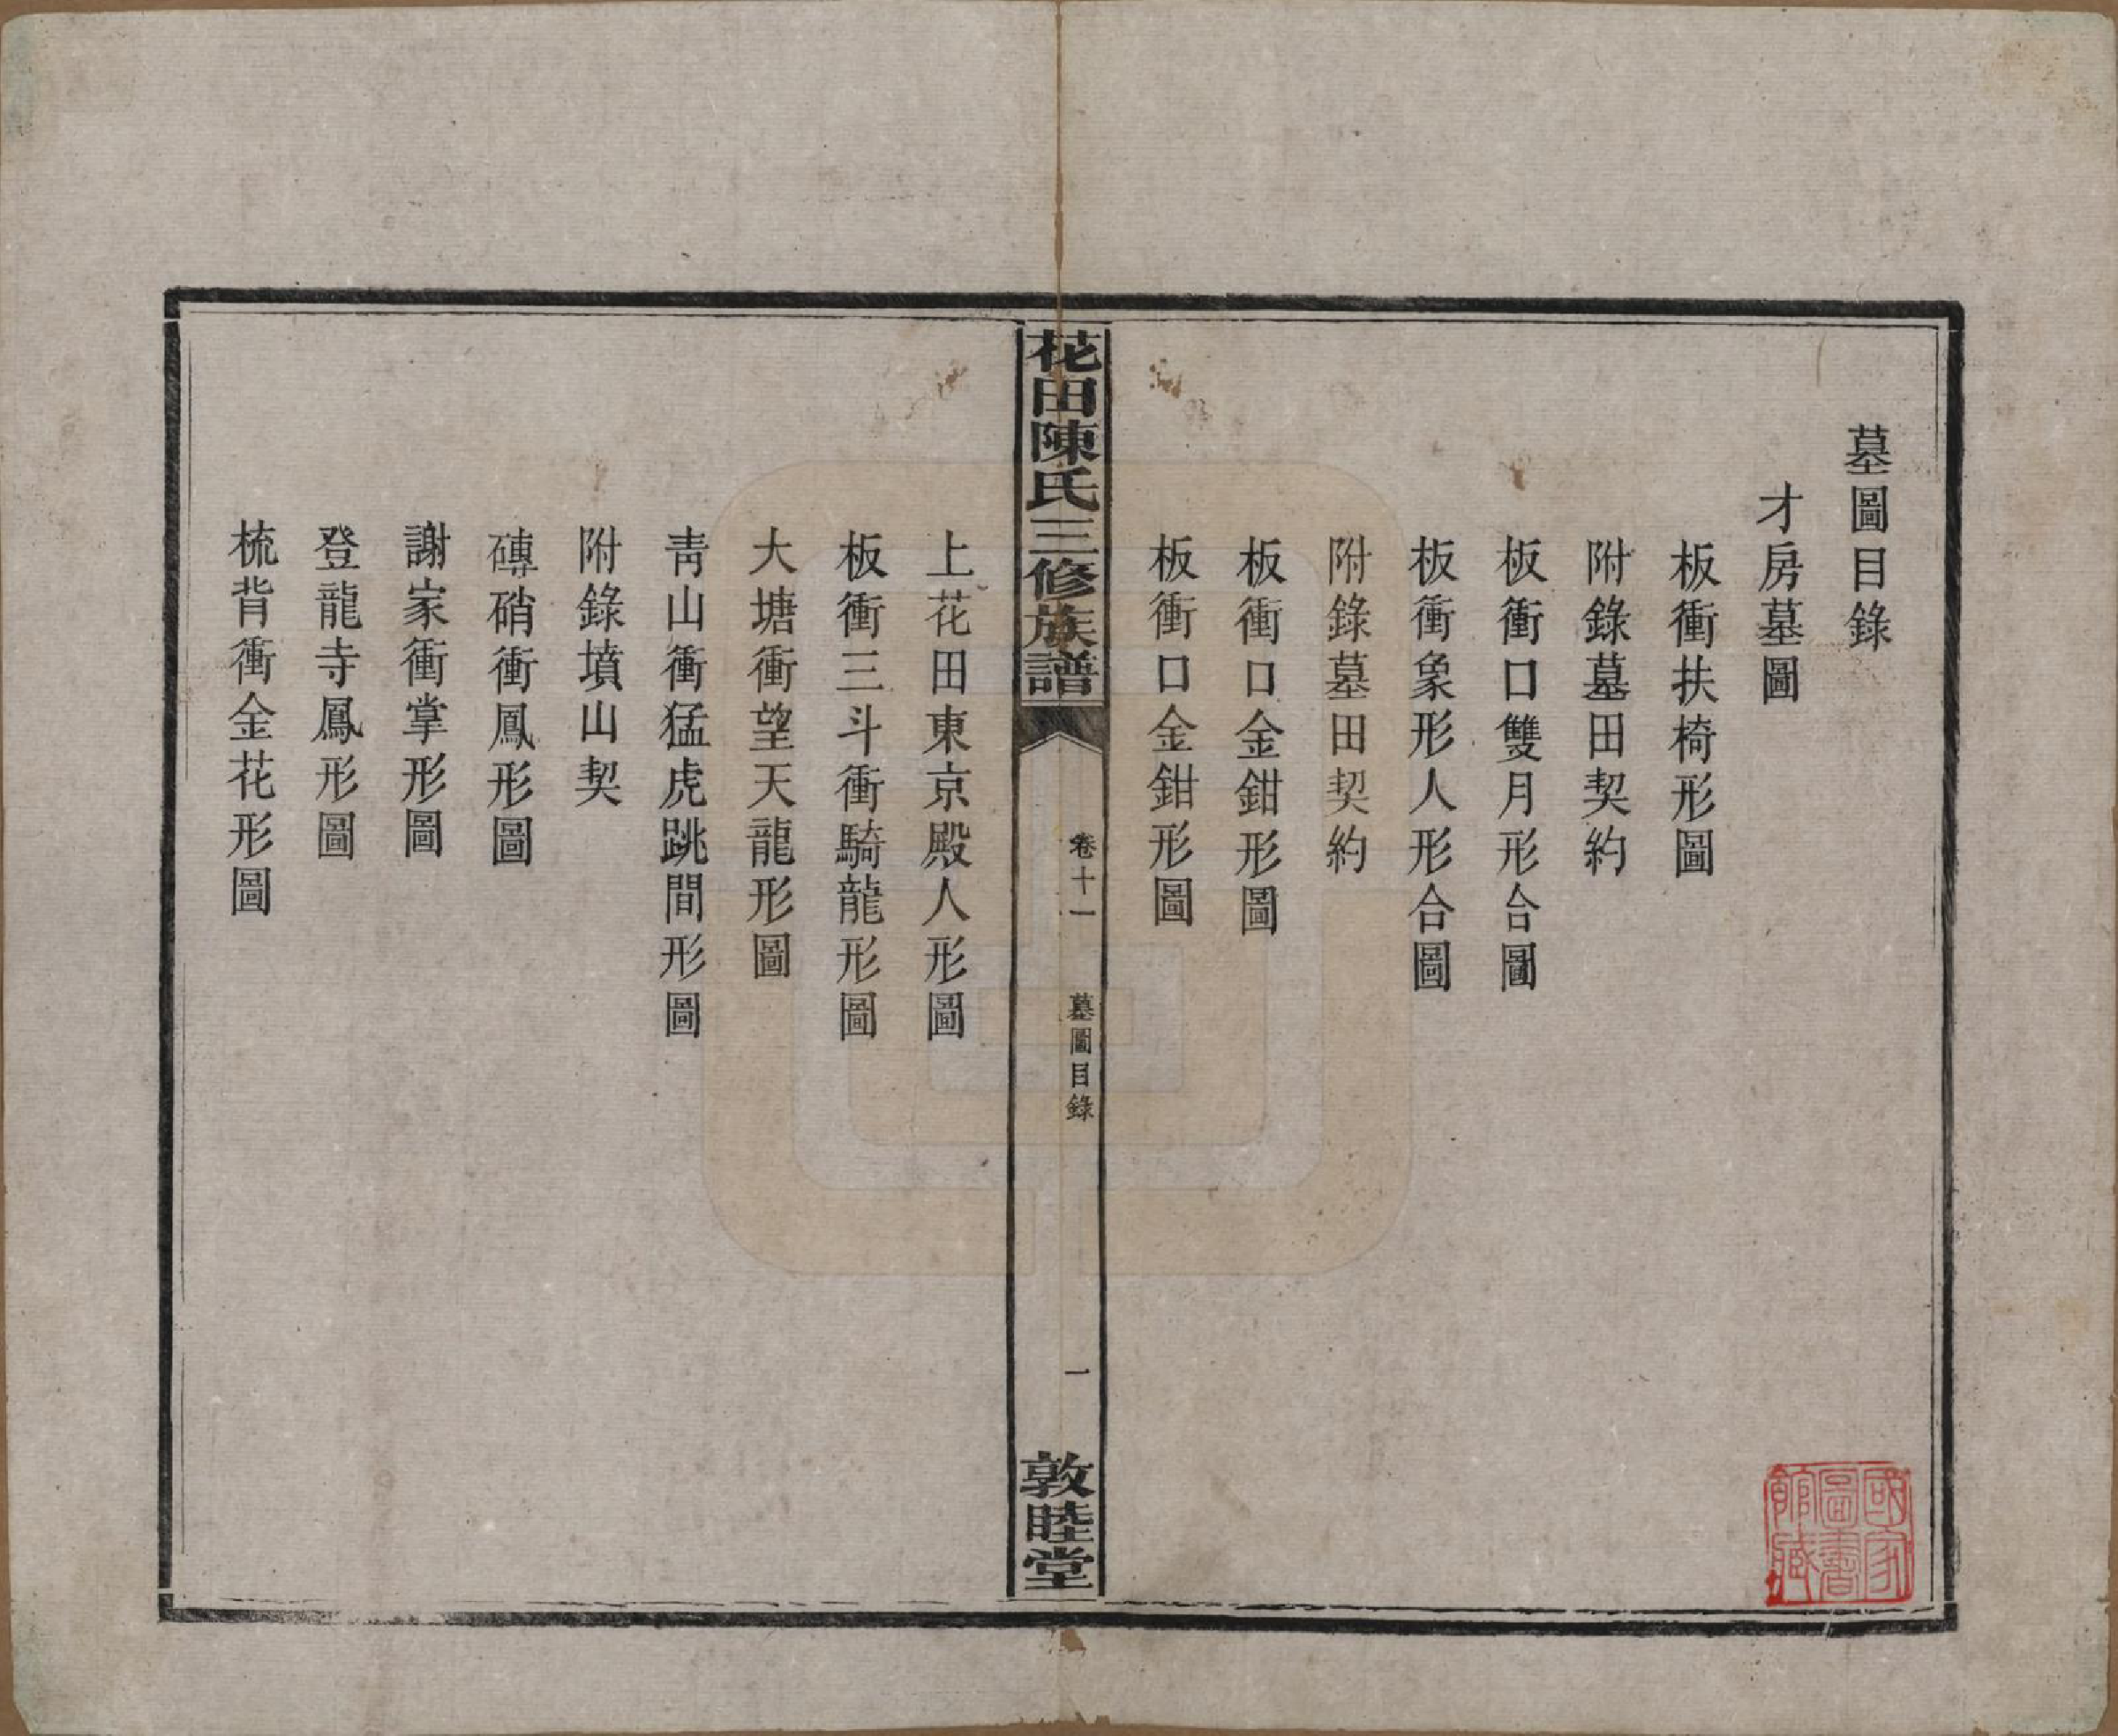 墓圖目錄
才房墓圖
板衝扶椅形圖
附錄墓田契約
板衝口雙月形合圖
板衝象形人形合圖
附錄墓田契約
板衝口金鉗形圖
板衝口金鉗形圖
花田陳氏三修族譜
卷十一
墓圖目錄
一
敦睦堂
上花田東京殿人形圖
板衝三斗衝騎龍形圖
大塘衝望天龍形圖
靑山衝猛虎跳間形圖
附錄墳山契
磚硝衝鳳形圖
謝家衝掌形圖
登龍寺鳳形圖
梳背衝金花形圖
國家圖書館藏